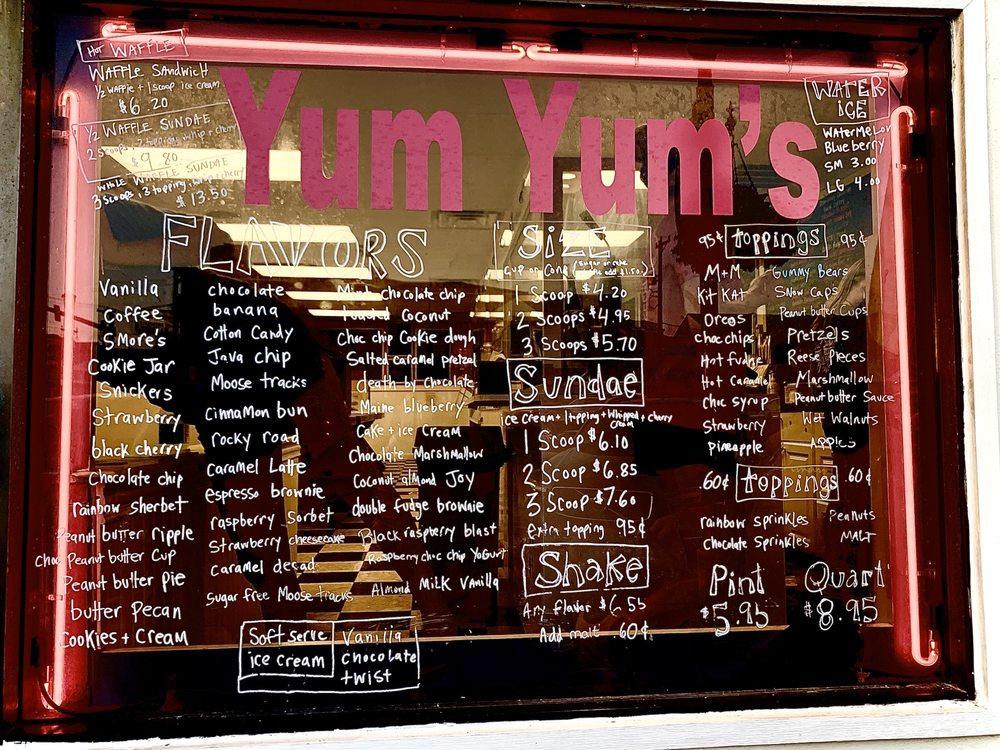 Yum Yum's
Hot WAFFLE
WAFFLE SANdwicH
1/2 WAFFle + 1 Scoop ice cream
$6.20
1/2 WAFFLE SUNDAE
2 Scoops, 2 toppings, whip + cherry
$9.80
WHOLE WAFFLE SUNDAE
3 Scoops, 3 topping, whip + cherry
$13.50
WATER
ICE
WaterMelon
Blueberry
SM 3.00
LG 4.00
FLAVORS
Vanilla
Coffee
SMore's
Cookie Jar
Snickers
Strawberry
black cherry
Chocolate chip
rainbow sherbet
Peanut butter ripple
choc Peanut butter Cup
Peanut butter pie
butter pecan
Cookies + Cream
chocolate
banana
Cotton Candy
Java chip
Moose tracks
cinnamon bun
rocky road
caramel Latte
espresso brownie
raspberry Sorbet
Strawberry cheesecake
caramel desad
Sugar free Moose tracks
Mint chocolate chip
toasted Coconut
Choc chip Cookie dough
Salted caramel pretzel
death by Chocolate
Maine blueberry
Cake + ice Cream
Chocolate Marshmallow
Coconut almond Joy
double fudge brownie
Black raspberry blast
Raspberry choc chip YoGurt
Almond MiLK Vanilla
Soft serve
ice cream
Vanilla
chocolate
twist
SiZE
Cup or Cone (Sugar or cake
add $1.50)
1 Scoop $4.20
2 Scoops $4.95
3 Scoops $5.70
Sundae
Ice cream + 1 topping + Whipped cream + cherry
1 Scoop $6.10
2 Scoop $6.85
3 Scoop $7.60
extra topping .95¢
Shake
Any flavor $6.55
Add malt .60¢
95¢ toppings .95¢
M+M
Kit KAt
Oreos
choc chips
Hot fudge
Hot Caramel
choc syrup
Strawberry
Pineapple
Gummy Bears
SNow caps
Peanut butter Cups
Pretzels
Reese Pieces
Marshmallow
Peanut butter Sauce
Wet Walnuts
APPles
.60¢ toppings .60¢
rainbow sprinkles
Chocolate Sprinkles
Peanuts
MALT
Pint
$5.95
Quart
$8.95